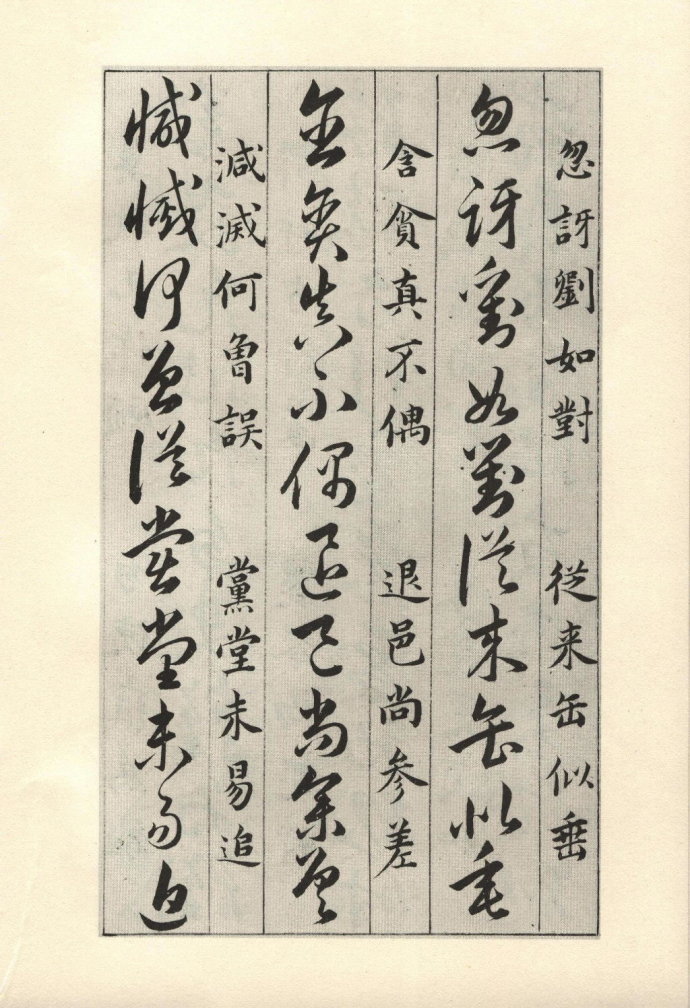 忽訝劉如對　従来缶似垂
忽訝劉如對従来缶似垂
含貪真不偶　退邑尚参差
含貪真不偶退邑尚参差
減滅何曽誤　黨堂未易追
減滅何曽誤黨堂未易追